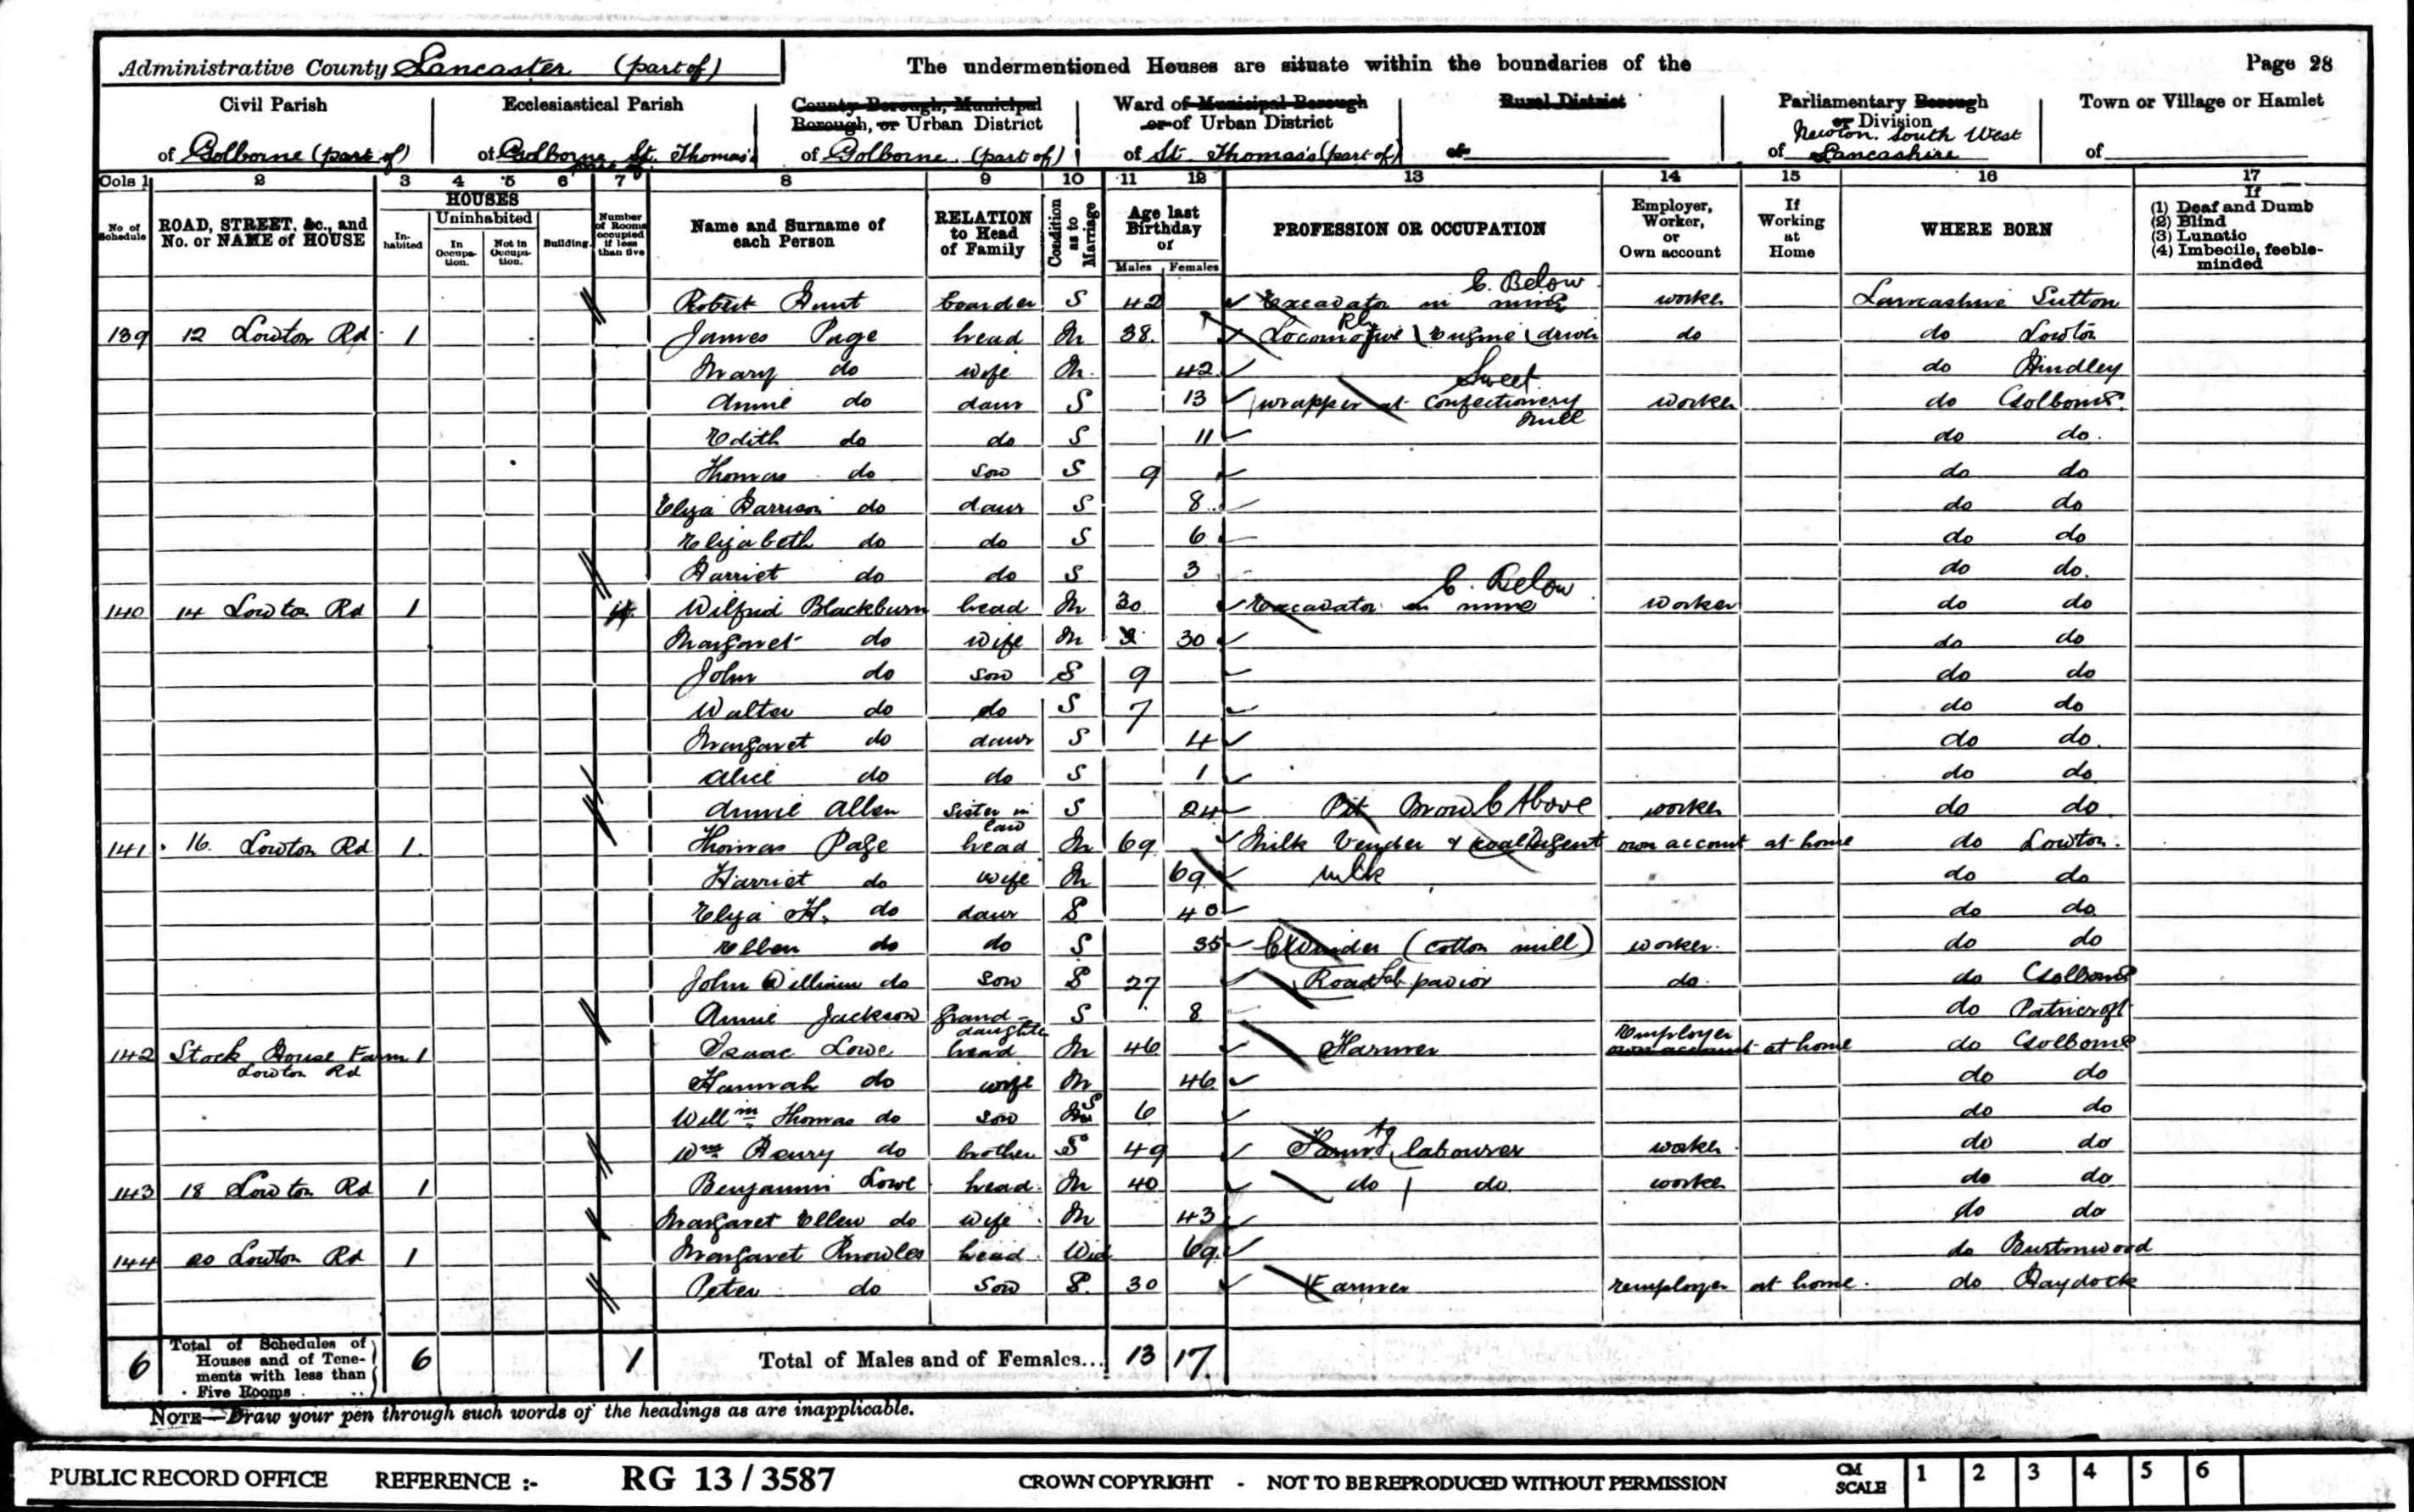 Administrative County Lancaster (part of) The undermentioned Houses are situate within the boundaries of the Page 28
Civil Parish Ecclesiastical Parish County Borough, Municipal Borough, or Urban District Ward of Municipal Borough or of Urban District Rural District Parliamentary Borough or Division Town or Village or Hamlet
of Golborne (part of) of Golborne St. Thomas's of Golborne (part of) of St. Thomas's (part of) of of Newton South West Lancashire of
Cols 1 2 3 4 5 6 7 8 9 10 11 12 13 14 15 16 17
No of Schedule ROAD, STREET, &c., and No. or NAME of HOUSE HOUSES Inhabited Uninhabited In Occupation. Not in Occupation. Building. Number of Rooms occupied if less than five Name and Surname of each Person RELATION to Head of Family Condition as to Marriage Age last Birthday of Males Females PROFESSION OR OCCUPATION Employer, Worker, or Own account If Working at Home WHERE BORN If (1) Deaf and Dumb (2) Blind (3) Lunatic (4) Imbecile, feeble-minded
Robert Hunt boarder S 42 Excavator in mine C. Below worker Lancashire Sutton
139 12 Lowton Rd 1 James Page head M 38 Locomotive Rly Engine driver do do Lowton
Mary do wife M 42 do Hindley
Annie do daur S 13 wrapper at Sweet Confectionery mill worker do Golborne
Edith do do S 11 do do
Thomas do son S 9 do do
Eliza Harrison do daur S 8 do do
Elizabeth do do S 6 do do
Harriet do do S 3 do do
140 14 Lowton Rd 1 4 Wilfrid Blackburn head M 30 Excavator in mine C. Below worker do do
Margaret do wife M 30 do do
John do son S 9 do do
Walter do do S 7 do do
Margaret do daur S 4 do do
Alice do do S 1 do do
Annie Allen Sister in law S 24 Pit Brow C Above worker do do
141 16 Lowton Rd 1 Thomas Page head M 69 Milk Vender & coal Agent own account at home do Lowton
Harriet do wife M 69 milk do do
Eliza H. do daur S 40 do do
Ellen do do S 35 C Winder (Cotton mill) worker do do
John William do son S 27 Road Lab pavior do do Golborne
Annie Jackson Grand-daughter S 8 do Patricroft
142 Stock House Farm Lowton Rd 1 Isaac Lowe head M 46 Farmer Employer own account at home do Golborne
Hannah do wife M 46 do do
Willm Thomas do son M S 6 do do
Wm Henry do brother S 49 Farm Ag labourer worker do do
143 18 Lowton Rd 1 Benjamin Lowe head M 40 do do worker do do
Margaret Ellen do wife M 43 do do
144 20 Lowton Rd 1 Margaret Knowles head Wid 69 do Burtonwood
Peter do son S 30 Farmer employer at home do Haydock
6 Total of Schedules of Houses and of Tenements with less than Five Rooms 6 1 Total of Males and of Females... 13 17
NOTE—Draw your pen through such words of the headings as are inapplicable.
PUBLIC RECORD OFFICE REFERENCE :- RG 13 / 3587 CROWN COPYRIGHT - NOT TO BE REPRODUCED WITHOUT PERMISSION CM SCALE 1 2 3 4 5 6